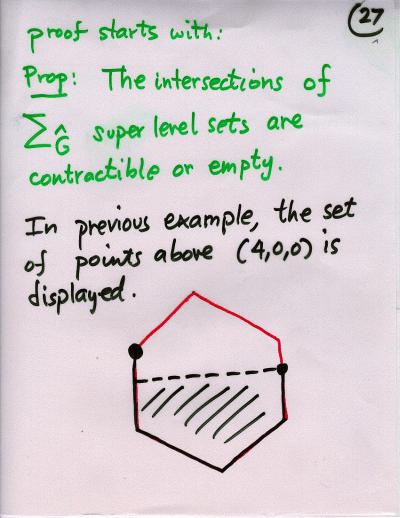 27
proof starts with:
Prop: The intersections of
∑_Ĝ super level sets are
contractible or empty.
In previous example, the set
of points above (4,0,0) is
displayed.